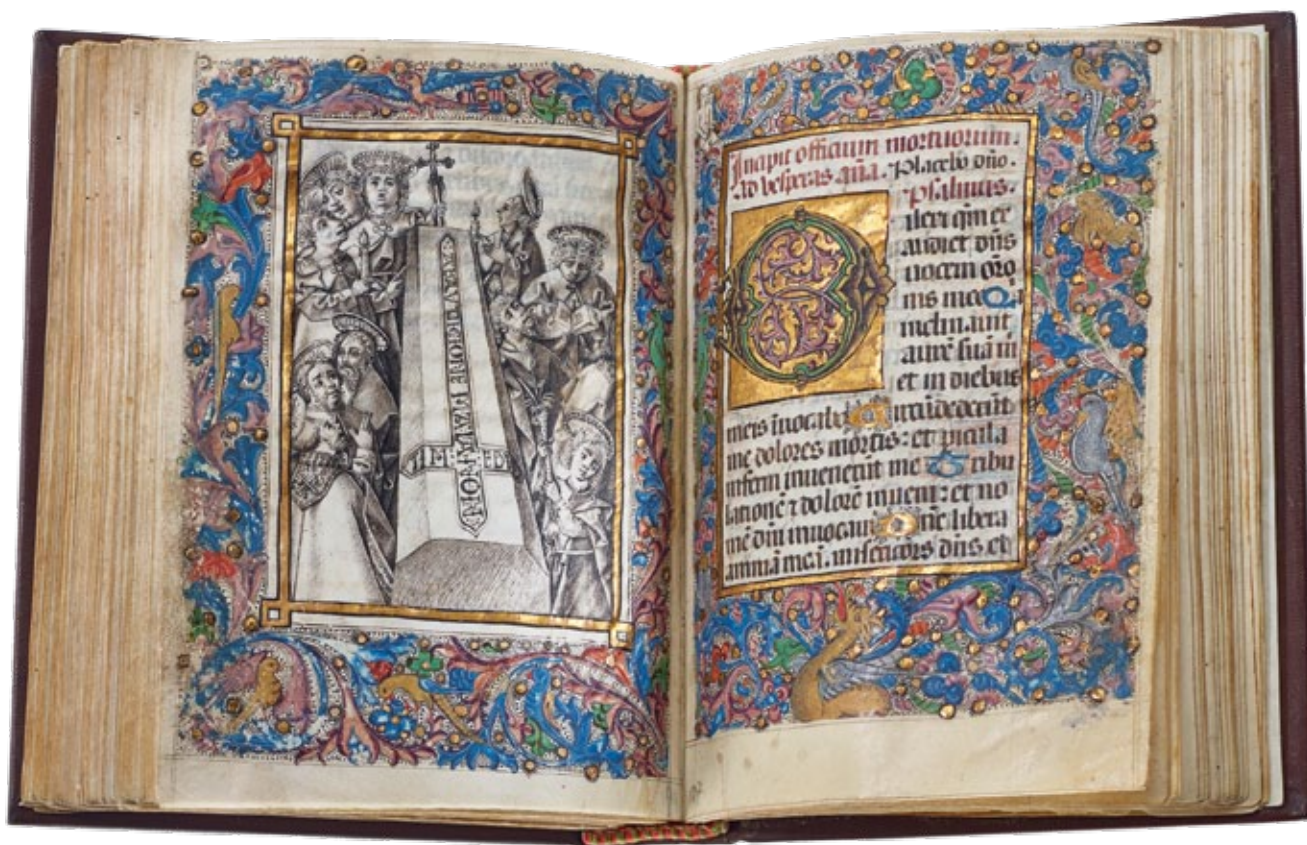 Incipit officium mortuorum.
ad vesperas añа. Placebo dño.
Psalmus.
D ilexi qm̄ ex
audiet dn̄s
vocem or̄o
nis mee Qi
inclinavit
aurē suā m
et in diebus
meis īvocabo Circūdederūt
me dolores mortis: et picula
inferni invenerūt me Tribu
lationē ⁊ dolorē inveni: et no
mē dn̄i invocavi O n̄e libera
animā meā. misericors dn̄s et